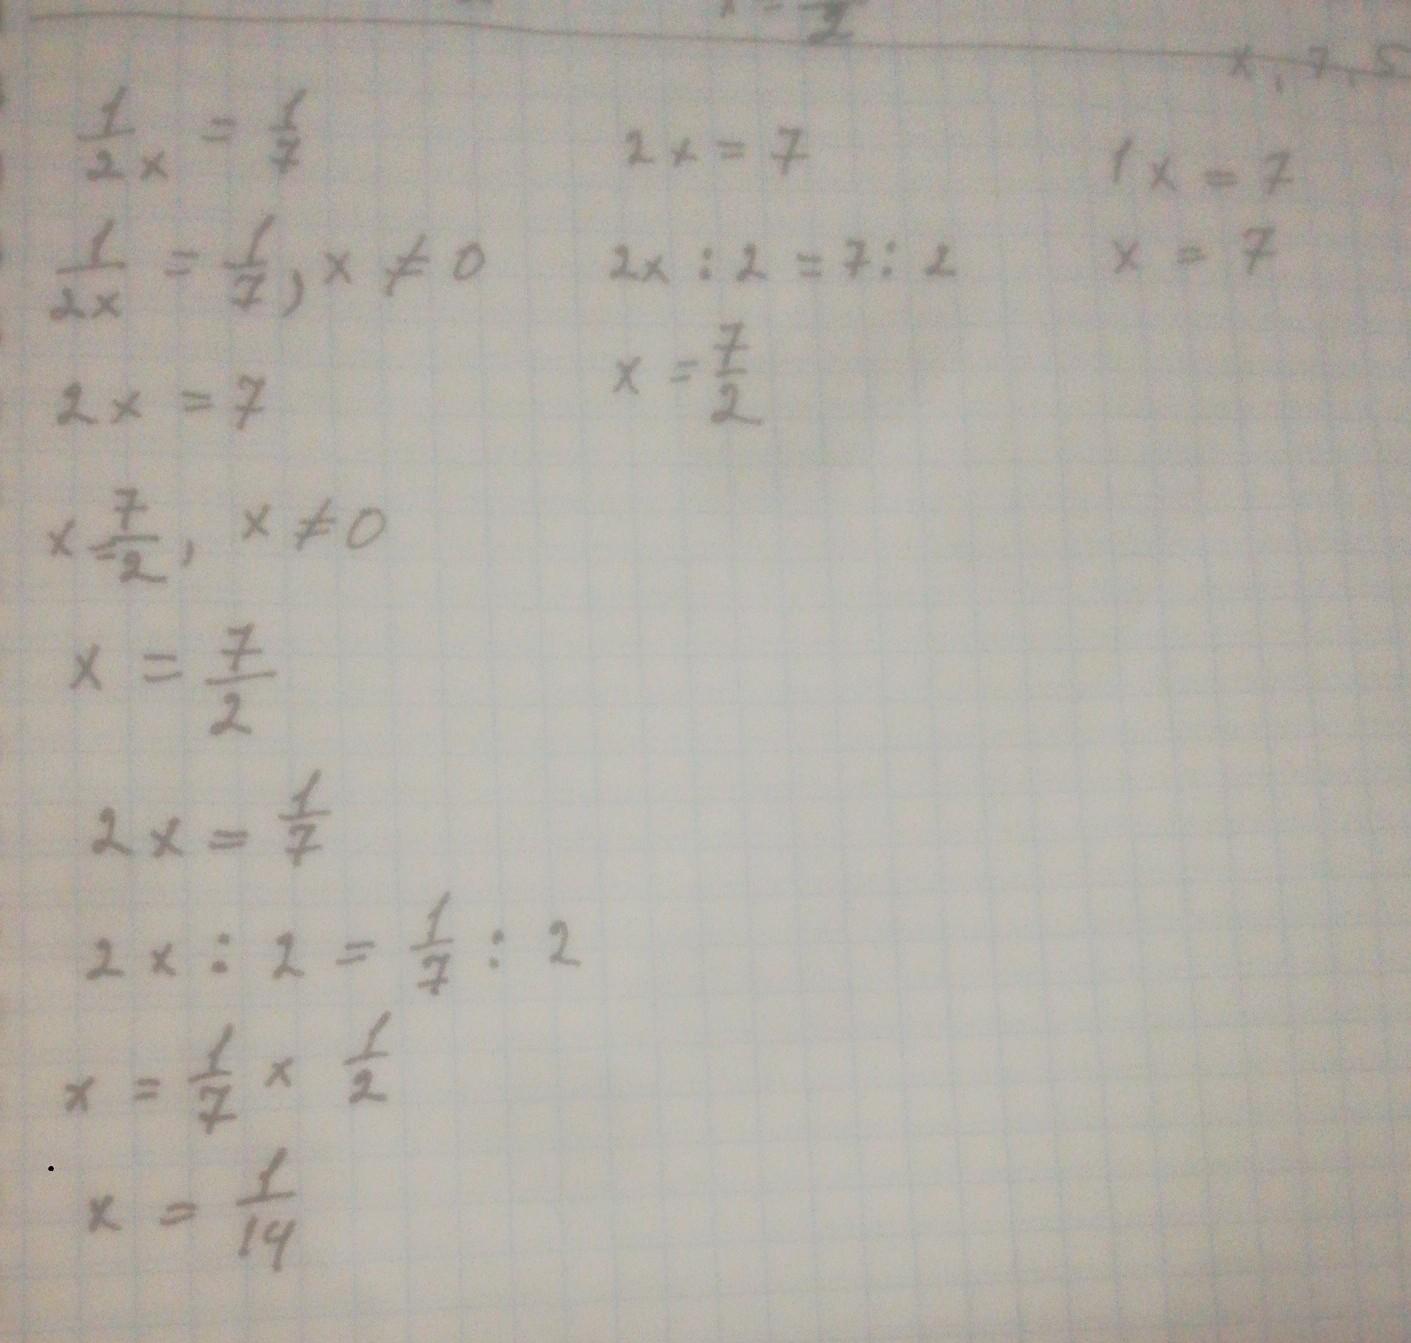 x, 7, 5
1/2x = 1/7
1/2x = 1/7, x ≠ 0
2x = 7
x = 7/2, x ≠ 0
x = 7/2
2x = 1/7
2x : 2 = 1/7 : 2
x = 1/7 x 1/2
x = 1/14
2x = 7
2x : 2 = 7 : 2
x = 7/2
1x = 7
x = 7